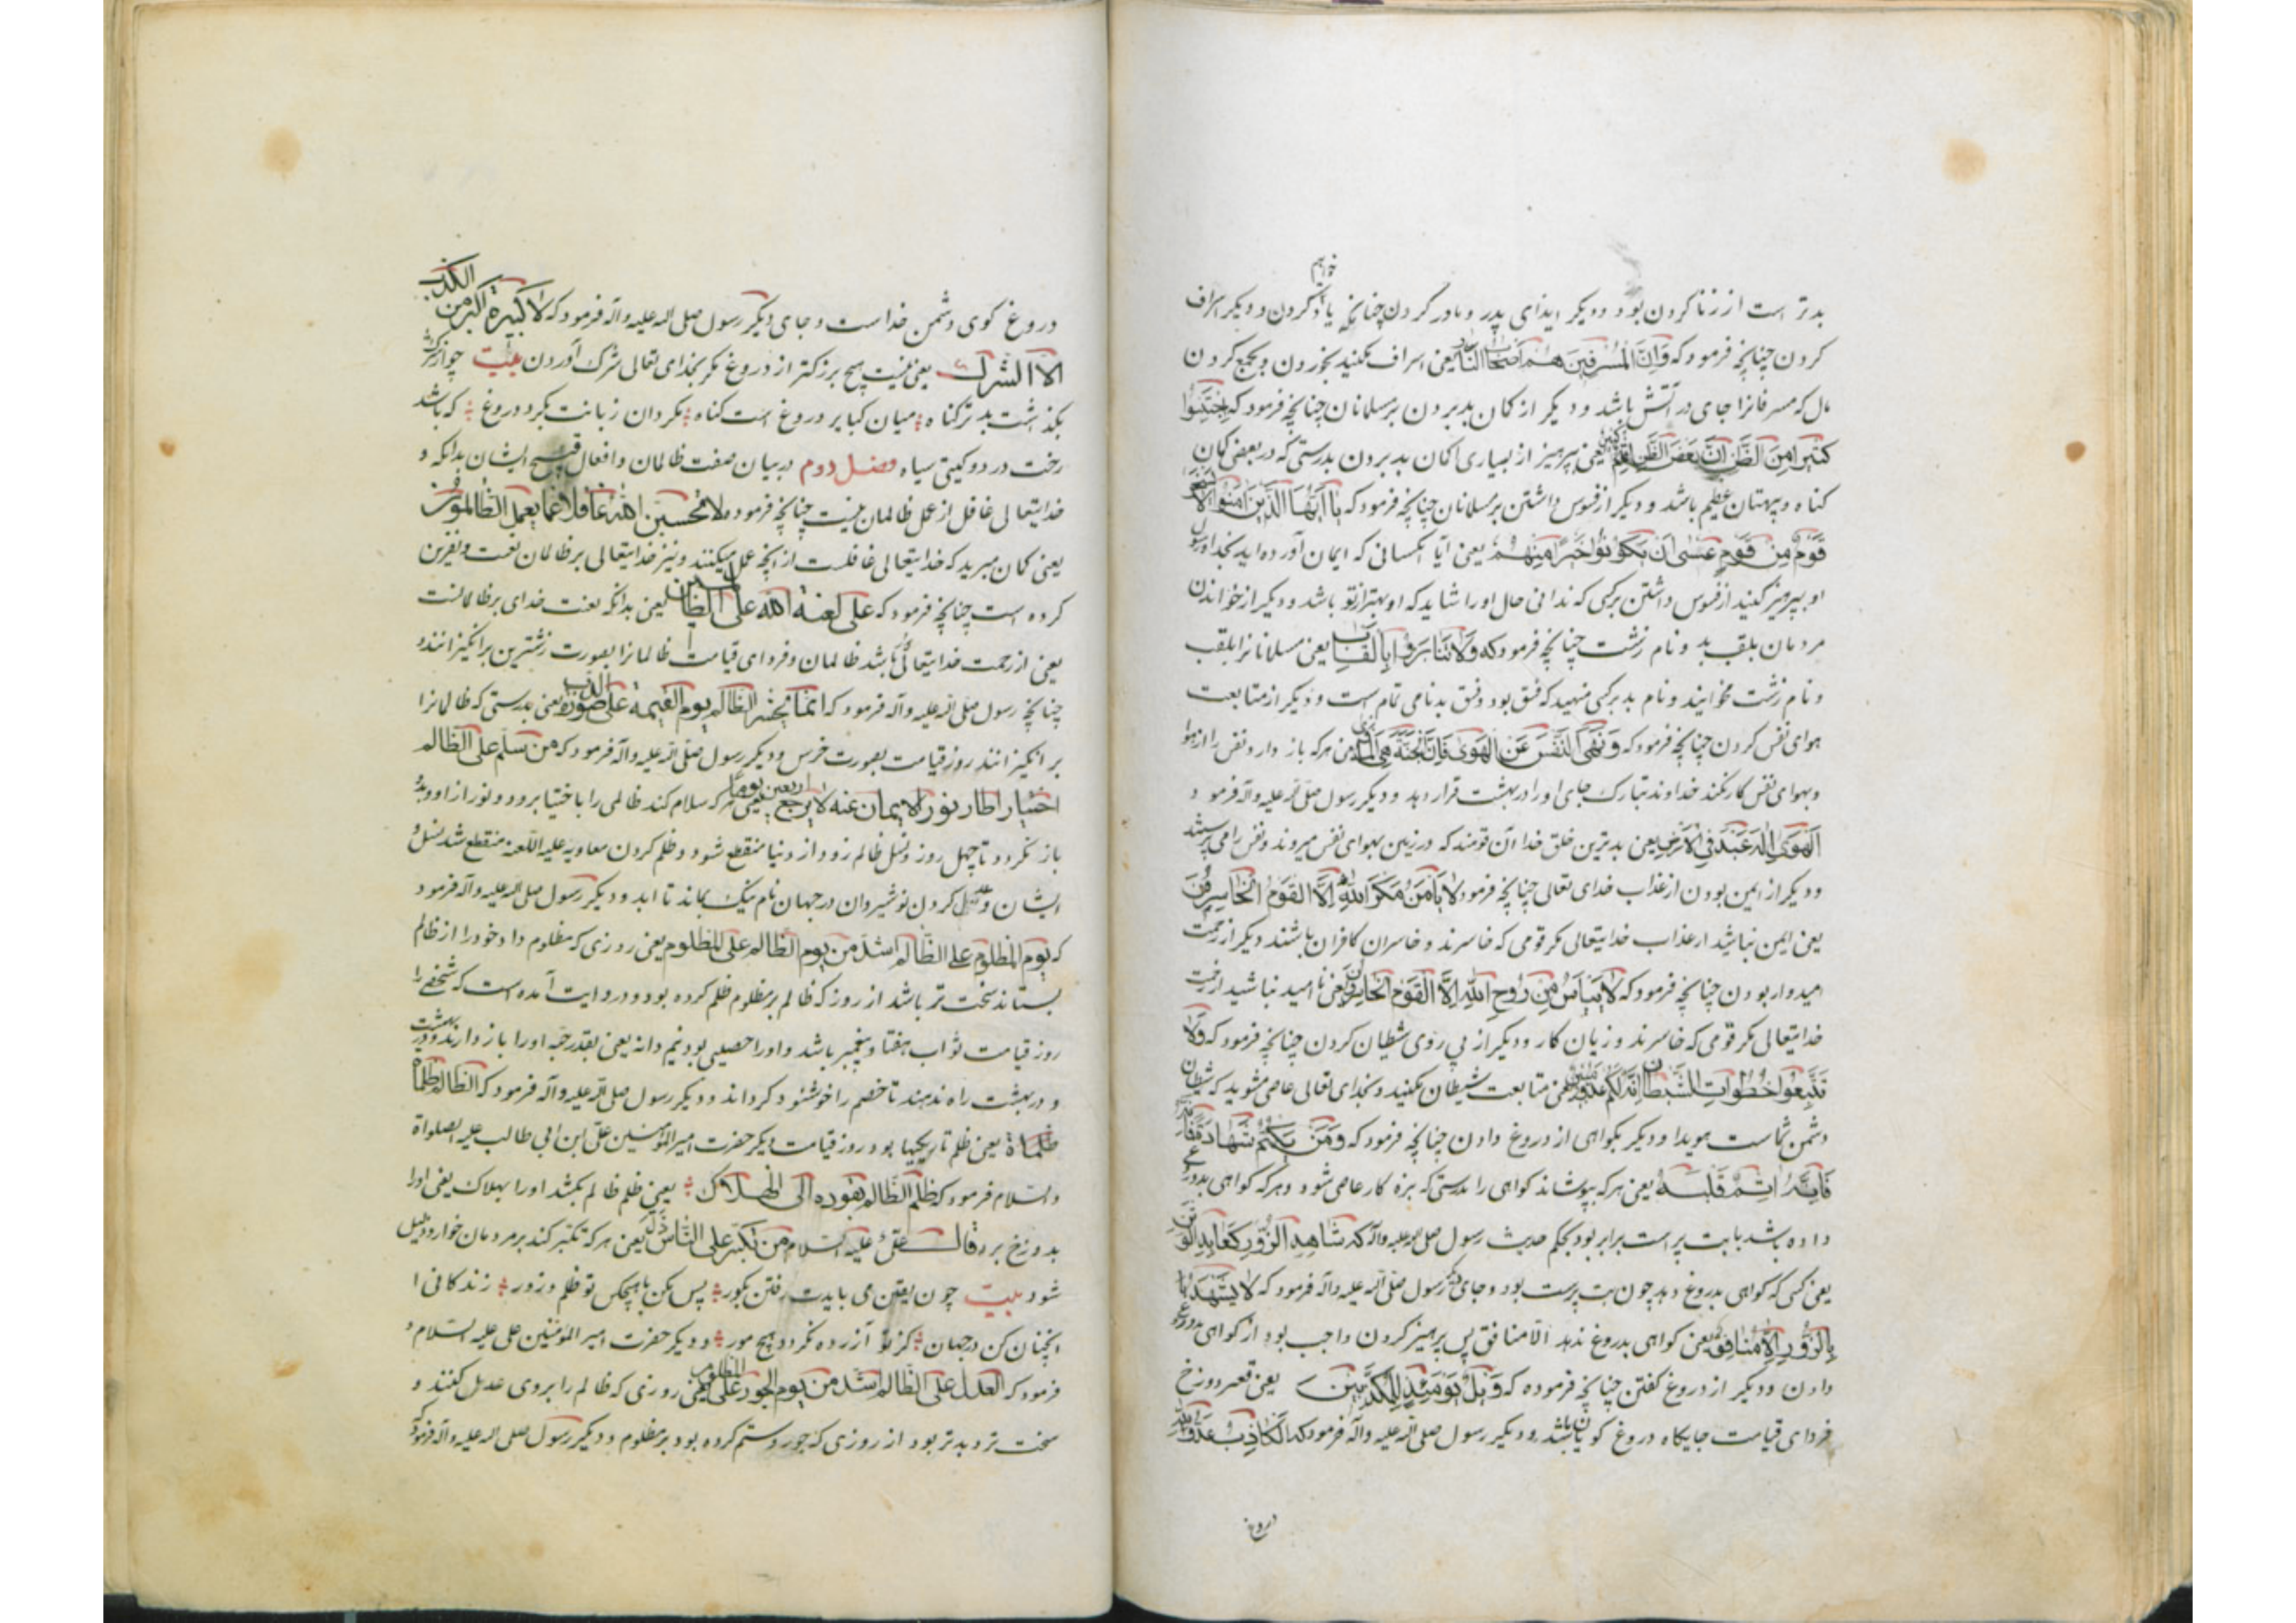 خواهیم
بدتر است از زنا کردن بود و دیگر ایذای پدر و مادر کردن چنانچه یاد کردن و دیگر اسراف
کردن چنانچه فرمود که وَاَنَّ المُسرِفینَ هُم اَصحابُ النّار یعنی اسراف مکنید بخوردن و بجمع کردن
مال که مسرفانرا جای در آتش باشد و دیگر از کمان بد بردن بر مسلمانان چنانچه فرمود که اِجتَنِبُوا
کَثیرًا مِنَ الظَّنِّ اِنَّ بَعضَ الظَّنِّ اِثمٌ یعنی بپرهیز از بسیاری کمان بد بردن بدرستی که در بعضی کمان
کناه و بهتان عظیم باشد و دیگر از فسوس داشتن بر مسلمانان چنانچه فرمود که یا اَیُّهَا الَّذینَ امَنُوا لا یَسخَر
قَومٌ مِن قَومٍ عَسی اَن یَکُونُوا خَیرًا مِنهُم یعنی آیا کسانی که ایمان آورده اید بخدا و رسول
او بپرهیز کنید از فسوس داشتن بر کسی که ندانی حال او را شاید که او بهتر از تو باشد و دیگر از خواندن
مردمان بلقب بد و نام زشت چنانچه فرمود که وَلا تَنابَزُوا بِالاَلقاب یعنی مسلمانانرا بلقب
و نام زشت مخوانید و نام بد بر کسی منهید که فسق بود و فسق بدنامی تمام است و دیگر از متابعت
هوای نفس کردن چنانچه فرمود که وَنَهَی النَّفسَ عَنِ الهَوی فَاِنَّ الجَنَّةَ هِیَ المَأوی یعنی هر که باز دارد نفس را از هوا
و بهوای نفس کار نکند خداوند تبارک جای او را در بهشت قرار دهد و دیگر رسول صلی الله علیه وآله فرمود
الهَوی اِلهٌ عُبِدَ فِی الاَرضِ یعنی بدترین خلق خدا آن قومند که در زمین بهوای نفس میروند و نفس را می پرستند
و دیگر از ایمن بودن از عذاب خدای تعالی چنانچه فرمود لا یَأمَنُ مَکرَ اللهِ اِلَّا القَومُ الخاسِرُونَ
یعنی ایمن نباشید از عذاب خدایتعالی مکر قومی که خاسرند و خاسران کافران باشند دیگر از رحمت
امیدوار بودن چنانچه فرمود که لا یَیأَسُ مِن رَوحِ اللهِ اِلَّا القَومُ الخاسِرُون یعنی نا امید نباشید از رحمت
خدایتعالی مکر قومی که خاسرند و زیان کار و دیگر از پی روی شیطان کردن چنانچه فرمود که وَلا
تَتَّبِعُوا خُطُواتِ الشَّیطانِ اِنَّهُ لَکُم عَدُوٌّ مُبین یعنی متابعت شیطان مکنید و بخدای تعالی عاصی مشوید که شیطان
دشمن شماست هویدا و دیگر بکواهی از دروغ دادن چنانچه فرمود که وَمَن یَکتُم شَهادَةً
فَاِنَّهُ اثِمٌ قَلبُهُ یعنی هر که بپوشاند کواهی را بدرستی که بزه کار عاصی شود و هر که کواهی بدروغ
داده باشد با بت پرست برابر بود بحکم حدیث رسول صلی الله علیه وآله که شاهِدُ الزُّورِ کَعابِدِ الوَثَن
یعنی کسی که کواهی بدروغ دهد چون بت پرست بود و جای دیگر رسول صلی الله علیه وآله فرمود که لا یَشهَدُ
بِالزُّورِ اِلّا مُنافِقٌ یعنی کواهی بدروغ ندهد الا منافق پس پرهیز کردن واجب بود از کواهی بدروغ
دادن و دیگر از دروغ کفتن چنانچه فرموده که وَیلٌ یَومَئِذٍ لِلمُکَذِّبینَ یعنی قعر دوزخ
فردای قیامت جایکاه دروغ کویان باشد و دیگر رسول صلی الله علیه وآله فرمود که اَلکاذِبُ عَدُوُّ الله
دروغ
دروغ کوی دشمن خداست و جای دیگر رسول صلی الله علیه وآله فرمود که لا کَبیرَةَ اکبر من الکذب
الّا الشرک یعنی نیست هیچ بزرکتر از دروغ مکر بخدای تعالی شرک آوردن بیت چو از شرک
بگذشت بدتر کناه میان کبایر دروغ است کناه مکردان زبانت بکرد دروغ که باشد
رخت در دو کیتی سیاه فصل دوم در بیان صفت ظالمان و افعال قبیح ایشان بدانکه
خدایتعالی غافل از عمل ظالمان نیست چنانچه فرمود ولا تحسبن الله غافلا عما یعمل الظالمون
یعنی کمان مبرید که خدایتعالی غافلست از آنچه عمل میکنند و نیز خدایتعالی بر ظالمان لعنت و نفرین
کرده است چنانچه فرمود که علی لعنة الله علی الظالمین یعنی بدانکه لعنت خدای بر ظالمانست
یعنی از رحمت خدایتعالی باشد ظالمان و فردای قیامت ظالمانرا بصورت زشترین برانکیزانند
چنانچه رسول صلی الله علیه وآله فرمود که انما یحشر الظالم یوم القیمة علی صورة الدب یعنی بدرستی که ظالمانرا
برانکیزانند روز قیامت بصورت خرس و دیگر رسول صلی الله علیه وآله فرمود که من سلم علی الظالم
اختیار اطار نور الایمان عنه لا یرجع اربعین یوما یعنی هر که سلام کند ظالمی را باختیار رود نور از او و بدو
باز نکردد تا چهل روز و نسل ظالم زود از دنیا منقطع شود و ظلم کردن معاویه علیه اللعنه منقطع شد نسل
ایشان و عدل کردن نوشیروان در جهان نام نیک بماند تا ابد و دیگر رسول صلی الله علیه وآله فرمود
که یوم المظلوم علی الظالم اشد من یوم الظالم علی المظلوم یعنی روزی که مظلوم داد خود را از ظالم
بستاند سخت تر باشد از روز که ظالم بر مظلوم ظلم کرده بود و در روایت آمده است که شخصی را
روز قیامت ثواب هفتاد پیغمبر باشد و او را خصمی بود بنیم دانه یعنی بقدر حبه او را باز دارند
و در بهشت راه ندهند تا خصم را خوشنود کرداند و دیگر رسول صلی الله علیه وآله فرمود که الظالم ظلماة
ظلماة یعنی ظلم تاریکیها بود روز قیامت دیگر حضرت امیرالمؤمنین علی ابن ابی طالب علیه الصلواة
والسلام فرمود که ظلم الظالم یقوده الی الهلاک یعنی ظلم ظالم بکشد او را بهلاک یعنی او را
بدوزخ برد قال علی علیه السلام من تکبر علی الناس ذل یعنی هر که تکبر کند بر مردمان خوار و ذلیل
شود بیت چون یقین می بایدت رفتن بکور پس مکن با هیچکس تو ظلم و زور زندکانی
آنچنان کن در جهان کز تو آزرده نکردد هیچ مور و دیگر حضرت امیرالمؤمنین علی علیه السلام
فرمود که العدل علی الظالم اشد من یوم الجور علی المظلوم یعنی روزی که ظالم را بروی عدل کنند
سخت تر و بدتر بود از روزی که جور و ستم کرده بود بر مظلوم و دیگر رسول صلی الله علیه وآله فرمود که